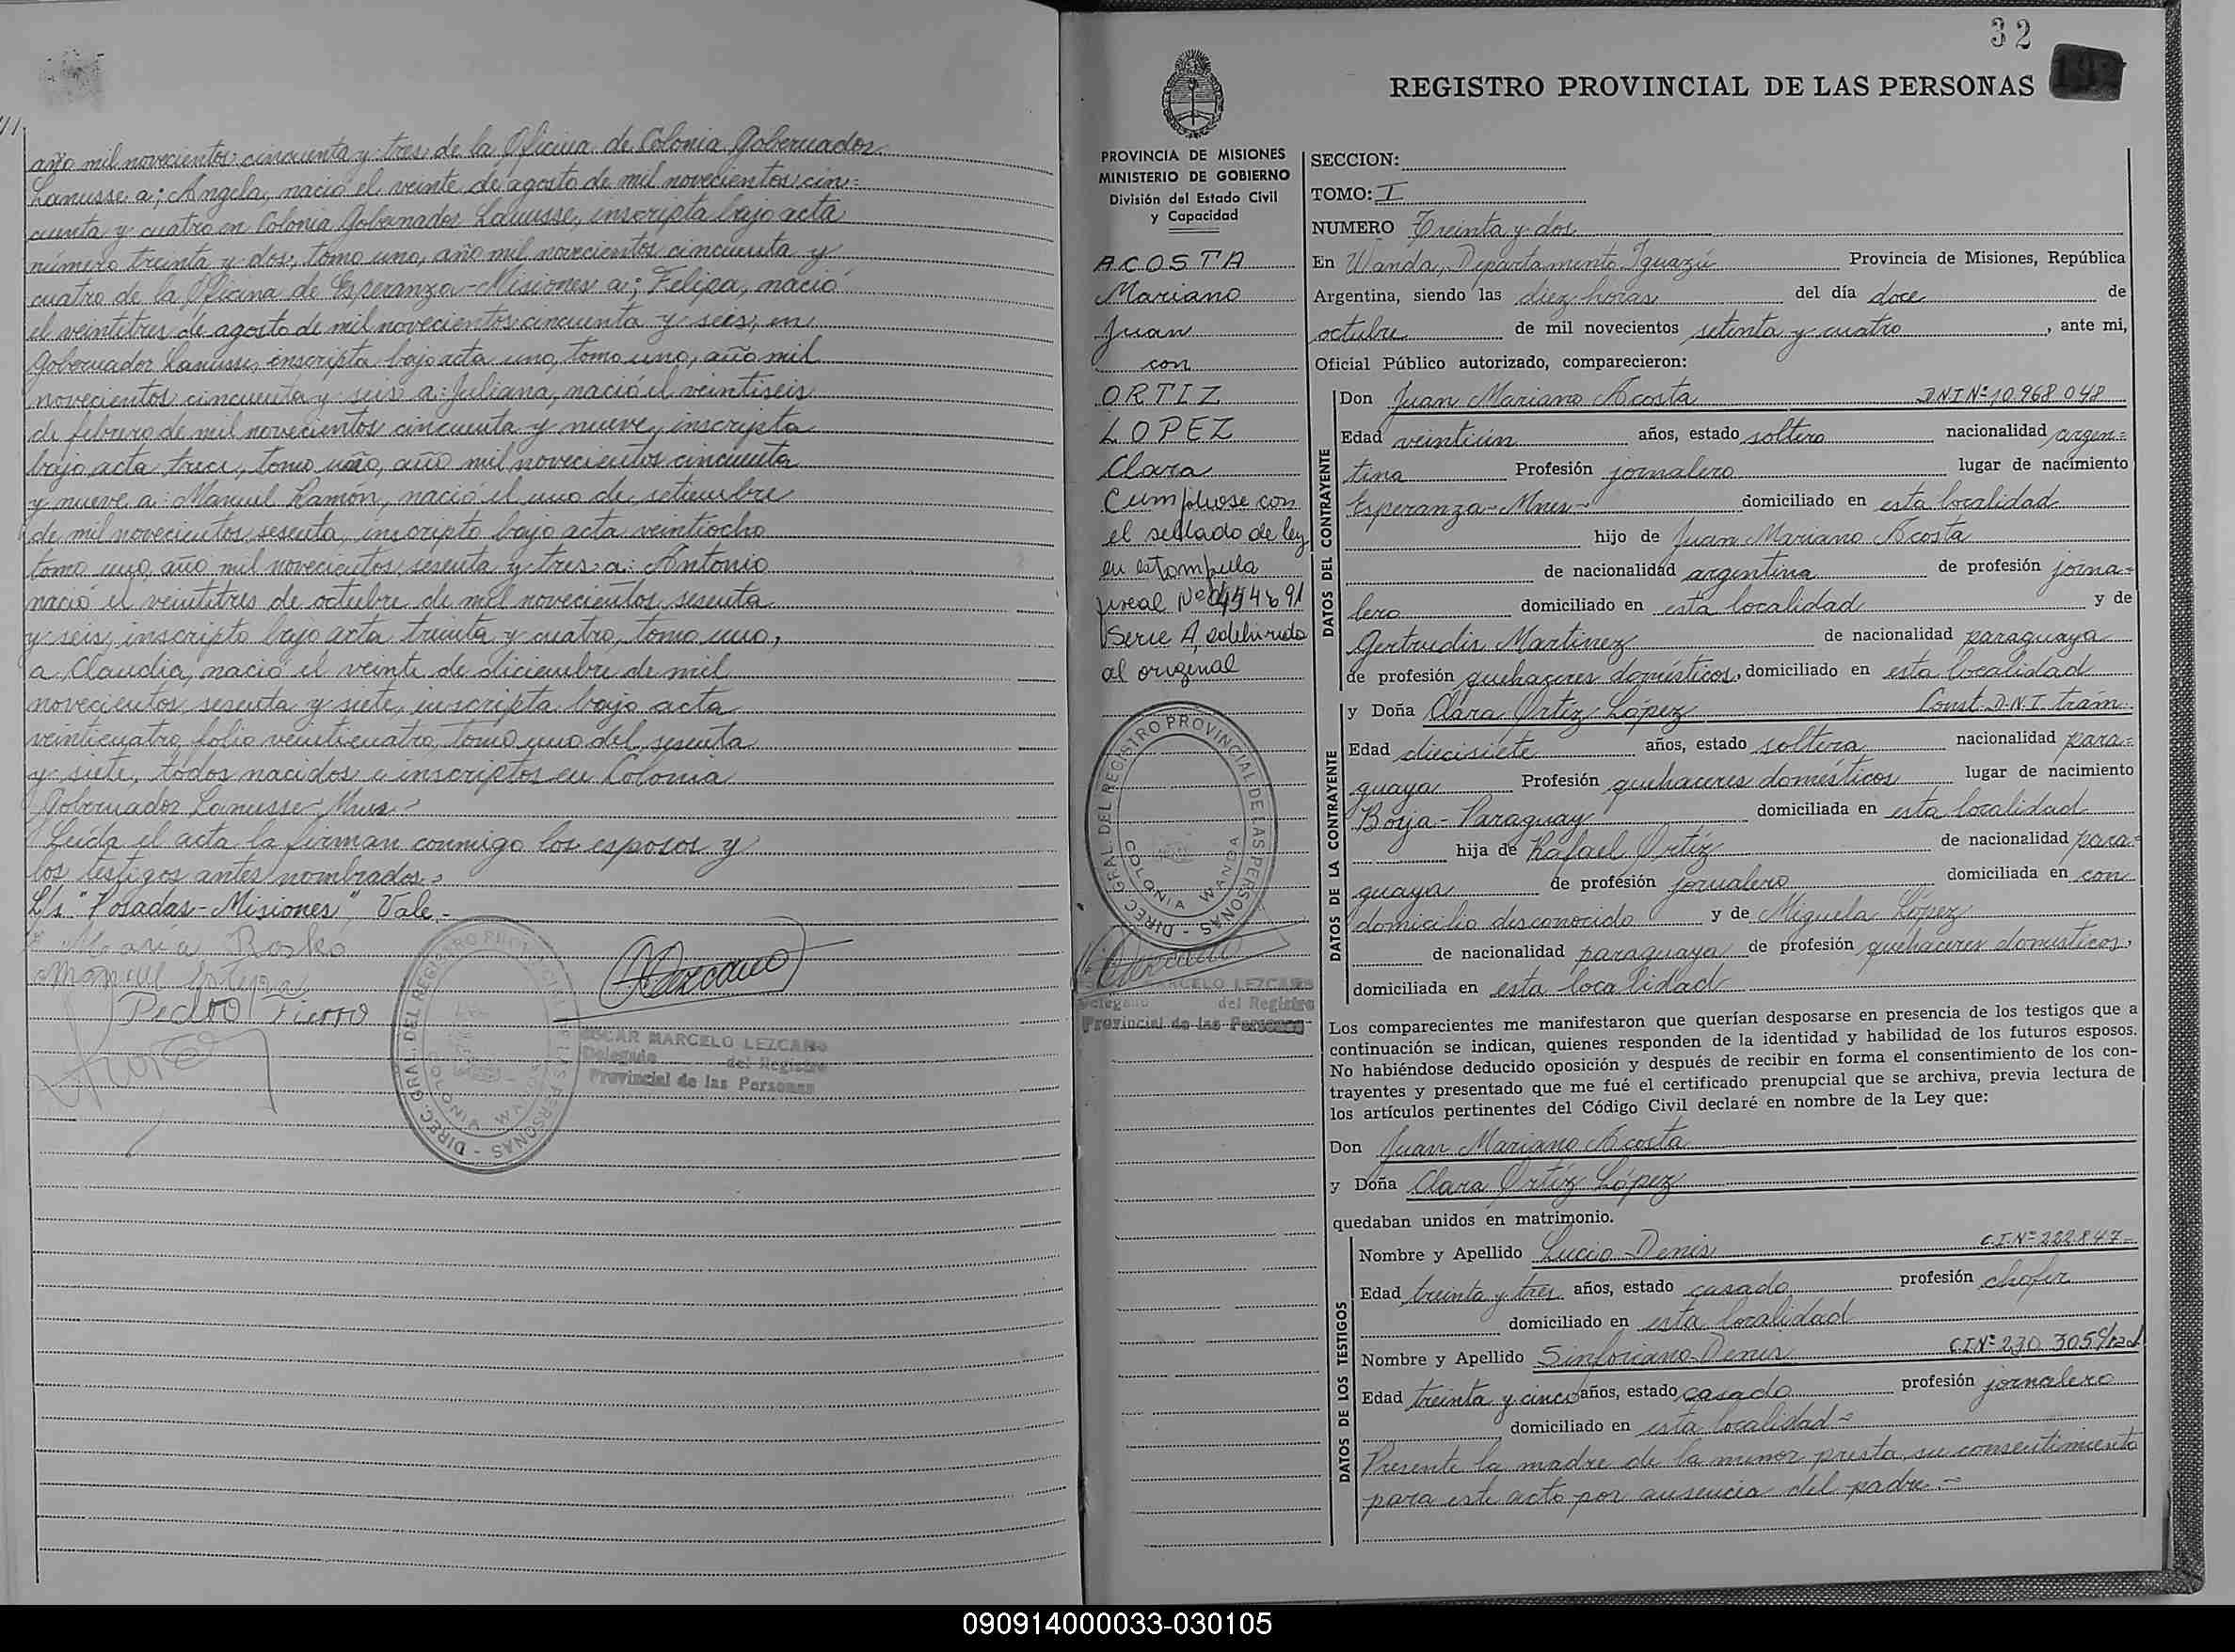 año mil novecientos cincuenta y tres de la Oficina de Colonia Gobernador
Lanusse a; Angela, nació el veinte de agosto de mil novecientos cin-
cuenta y cuatro en Colonia Gobernador Lanusse, inscripta bajo acta
número treinta y dos, tomo uno, año mil novecientos cincuenta y
cuatro de la Oficina de Esperanza-Misiones a; Felipa, nació
el veintitres de agosto de mil novecientos cincuenta y seis, en
Gobernador Lanusse, inscripta bajo acta uno, tomo uno, año mil
novecientos cincuenta y seis a: Juliana, nació el veintiseis
de febrero de mil novecientos cincuenta y nueve, inscripta
bajo acta trece, tomo uno, año mil novecientos cincuenta
y nueve a: Manuel Ramón, nació el uno de setiembre
de mil novecientos sesenta, inscripto bajo acta veintiocho
tomo uno, año mil novecientos sesenta y tres a: Antonio
nació el veintitres de octubre de mil novecientos sesenta
y seis, inscripto bajo acta treinta y cuatro, tomo uno,
a Claudia, nació el veinte de diciembre de mil
novecientos sesenta y siete, inscripta bajo acta
veinticuatro folio veinticuatro, tomo uno del sesenta
y siete, todos nacidos e inscriptos en Colonia
Gobernador Lanusse-Mnes.-
Leída el acta la firman conmigo los esposos y
los testigos antes nombrados.-
L/s "Posadas-Misiones", Vale.-
Maria
Manuel
Pedro Fierro
OSCAR MARCELO LEZCANO
Delegado del Registro
Provincial de las Personas
DIREC. GRAL. DEL REGISTRO PROVINCIAL DE LAS PERSONAS
COLONIA WANDA
32
REGISTRO PROVINCIAL DE LAS PERSONAS
PROVINCIA DE MISIONES
MINISTERIO DE GOBIERNO
División del Estado Civil
y Capacidad
ACOSTA
Mariano
Juan
con
ORTIZ
LOPEZ
Clara
Cumpliose con
el sellado de ley
en estampilla
fiscal
Serie A, adherida
al original
DIREC. GRAL. DEL REGISTRO PROVINCIAL DE LAS PERSONAS
COLONIA WANDA
MARCELO LEZCANO
Delegado del Registro
Provincial de las Personas
SECCION:
TOMO: I
NUMERO Treinta y dos
En Wanda, Departamento Iguazú Provincia de Misiones, República
Argentina, siendo las diez horas del día doce de
octubre de mil novecientos setenta y cuatro, ante mi,
Oficial Público autorizado, comparecieron:
DATOS DEL CONTRAYENTE
Don Juan Mariano Acosta DNI Nº 10.968.048
Edad veintiún años, estado soltero nacionalidad argen-
tina Profesión jornalero lugar de nacimiento
Esperanza-Mnes- domiciliado en esta localidad
hijo de Juan Mariano Acosta
de nacionalidad argentina de profesión jorna-
lero domiciliado en esta localidad y de
Gertrudis Martinez de nacionalidad paraguaya
de profesión quehaceres domésticos, domiciliado en esta localidad
DATOS DE LA CONTRAYENTE
y Doña Clara Ortíz López Const. D.N.I. trám.
Edad diecisiete años, estado soltera nacionalidad para-
guaya Profesión quehaceres domésticos lugar de nacimiento
Borja-Paraguay domiciliada en esta localidad
hija de Rafael Ortíz de nacionalidad para-
guaya de profesión jornalero domiciliada en con
domicilio desconocido y de Miguela López
de nacionalidad paraguaya de profesión quehaceres domésticos,
domiciliada en esta localidad
Los comparecientes me manifestaron que querían desposarse en presencia de los testigos que a
continuación se indican, quienes responden de la identidad y habilidad de los futuros esposos.
No habiéndose deducido oposición y después de recibir en forma el consentimiento de los con-
trayentes y presentado que me fué el certificado prenupcial que se archiva, previa lectura de
los artículos pertinentes del Código Civil declaré en nombre de la Ley que:
Don Juan Mariano Acosta
y Doña Clara Ortíz López
quedaban unidos en matrimonio.
DATOS DE LOS TESTIGOS
Nombre y Apellido Lucio Denis C.I. Nº 222847-
Edad treinta y tres años, estado casado profesión chofer
domiciliado en esta localidad
Nombre y Apellido Sinforiano Denis C.I. Nº 230.305
Edad treinta y cinco años, estado casado profesión jornalero
domiciliado en esta localidad-
Presente la madre de la menor presta su consentimiento
para este acto por ausencia del padre.-
090914000033-030105